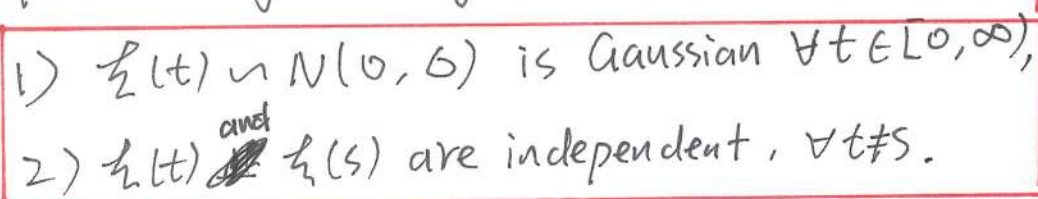 1) ξ(t) ~ N(0, 6) is Gaussian ∀t∈[0,∞),
2) ξ(t) and ξ(s) are independent, ∀t≠s.